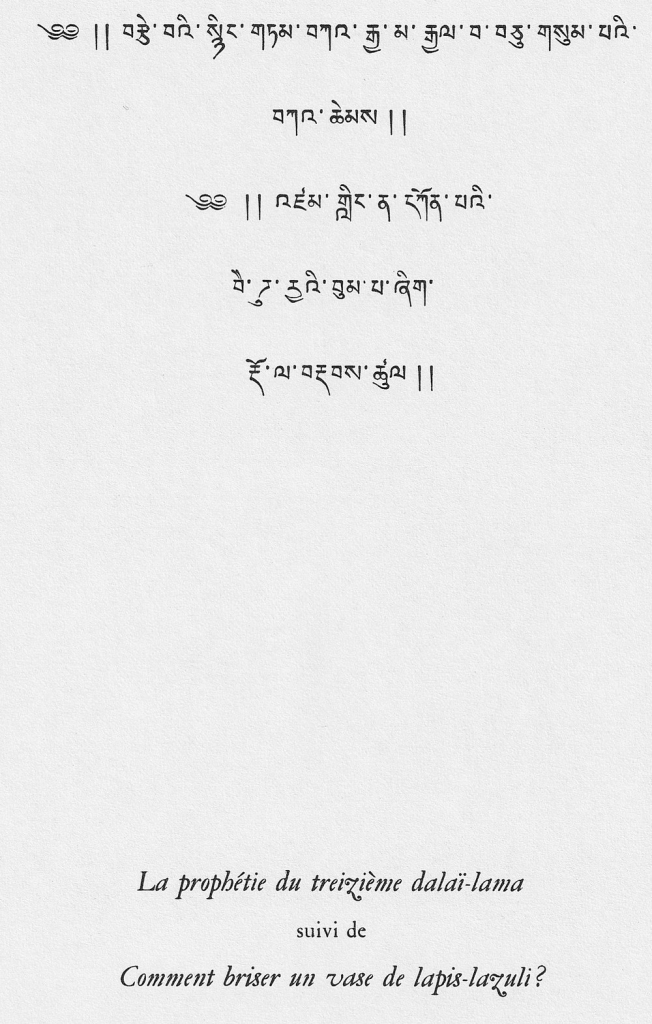 ༄༅ །། བརྩེ་བའི་སྙིང་གཏམ་བཀའ་རྒྱ་མ་རྒྱལ་བ་བཅུ་གསུམ་པའི་
བཀའ་ཆེམས །།
༄༅ །། འཛམ་གླིང་ན་དཀོན་པའི་
བཻ་ཌུ་རྱའི་བུམ་པ་ཞིག་
རྡོ་ལ་བརྡབས་ཚུལ །།
La prophétie du treizième dalaï-lama
suivi de
Comment briser un vase de lapis-lazuli ?